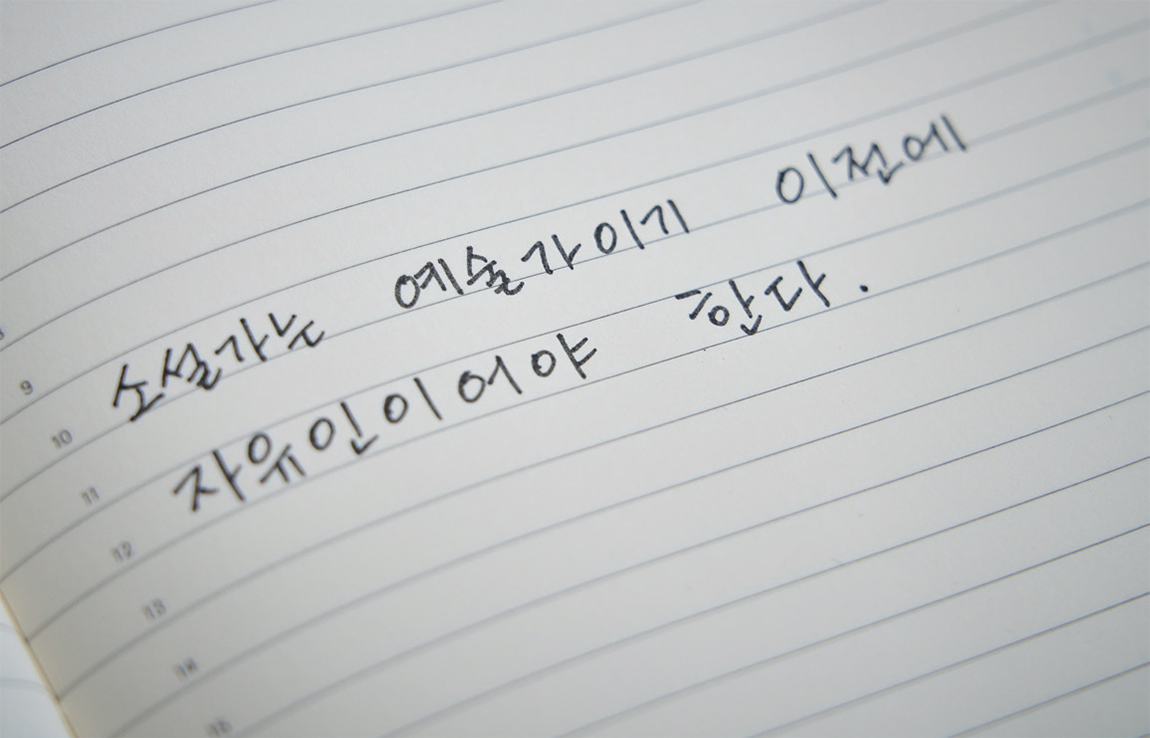 소설가는 예술가이기 이전에
자유인이어야 한다.
9
10
11
12
13
14
15